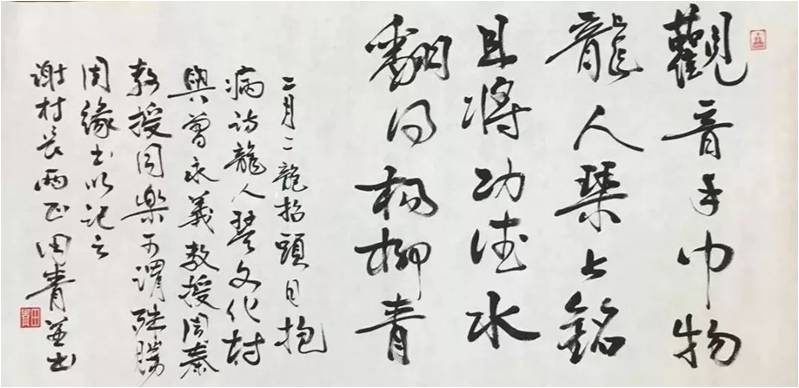 觀音手巾物
龍人琴上銘
且將功德水
翻楊柳青
二月二龍抬頭日抱
病訪龍人琴文化村
與曾永義教授周秦
教授同樂可謂殊勝
因緣書以記之
謝村長兩正田青並書